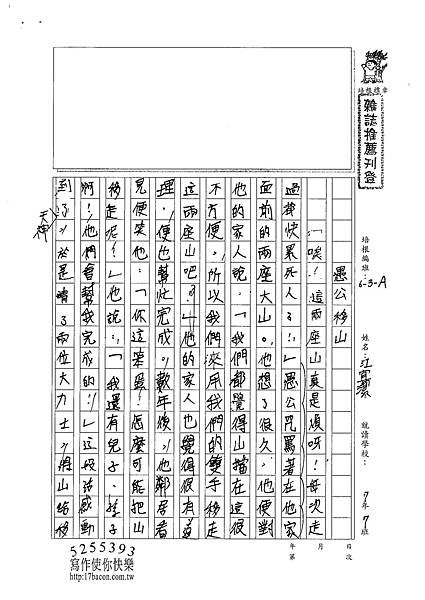 培根標章
雜誌推薦刊登
培根編班：6-3-A
姓名：江
就讀學校：7年7班
愚公移山
「唉！這兩座山真是煩呀！每次走
過都快累死人了！」愚公咒罵著在他家
面前的兩座大山。他想了很久，他便對
他的家人說：「我們都覺得山擋在這很
不方便。所以我們來用我們的雙手移走
這兩座山吧！」他的家人也覺得很有道
理，便也幫忙完成。數年後，他鄰居看
見便笑他：「你這笨蛋！怎麼可能把山
移走呢？」他說：「我還有兒子、孫子
啊！他們會幫我完成的！」這段話感動
到了天神，於是請了兩位大力士，將山給移
年 月 日
第 次
5255393
寫作使你快樂
http://17bacon.com.tw